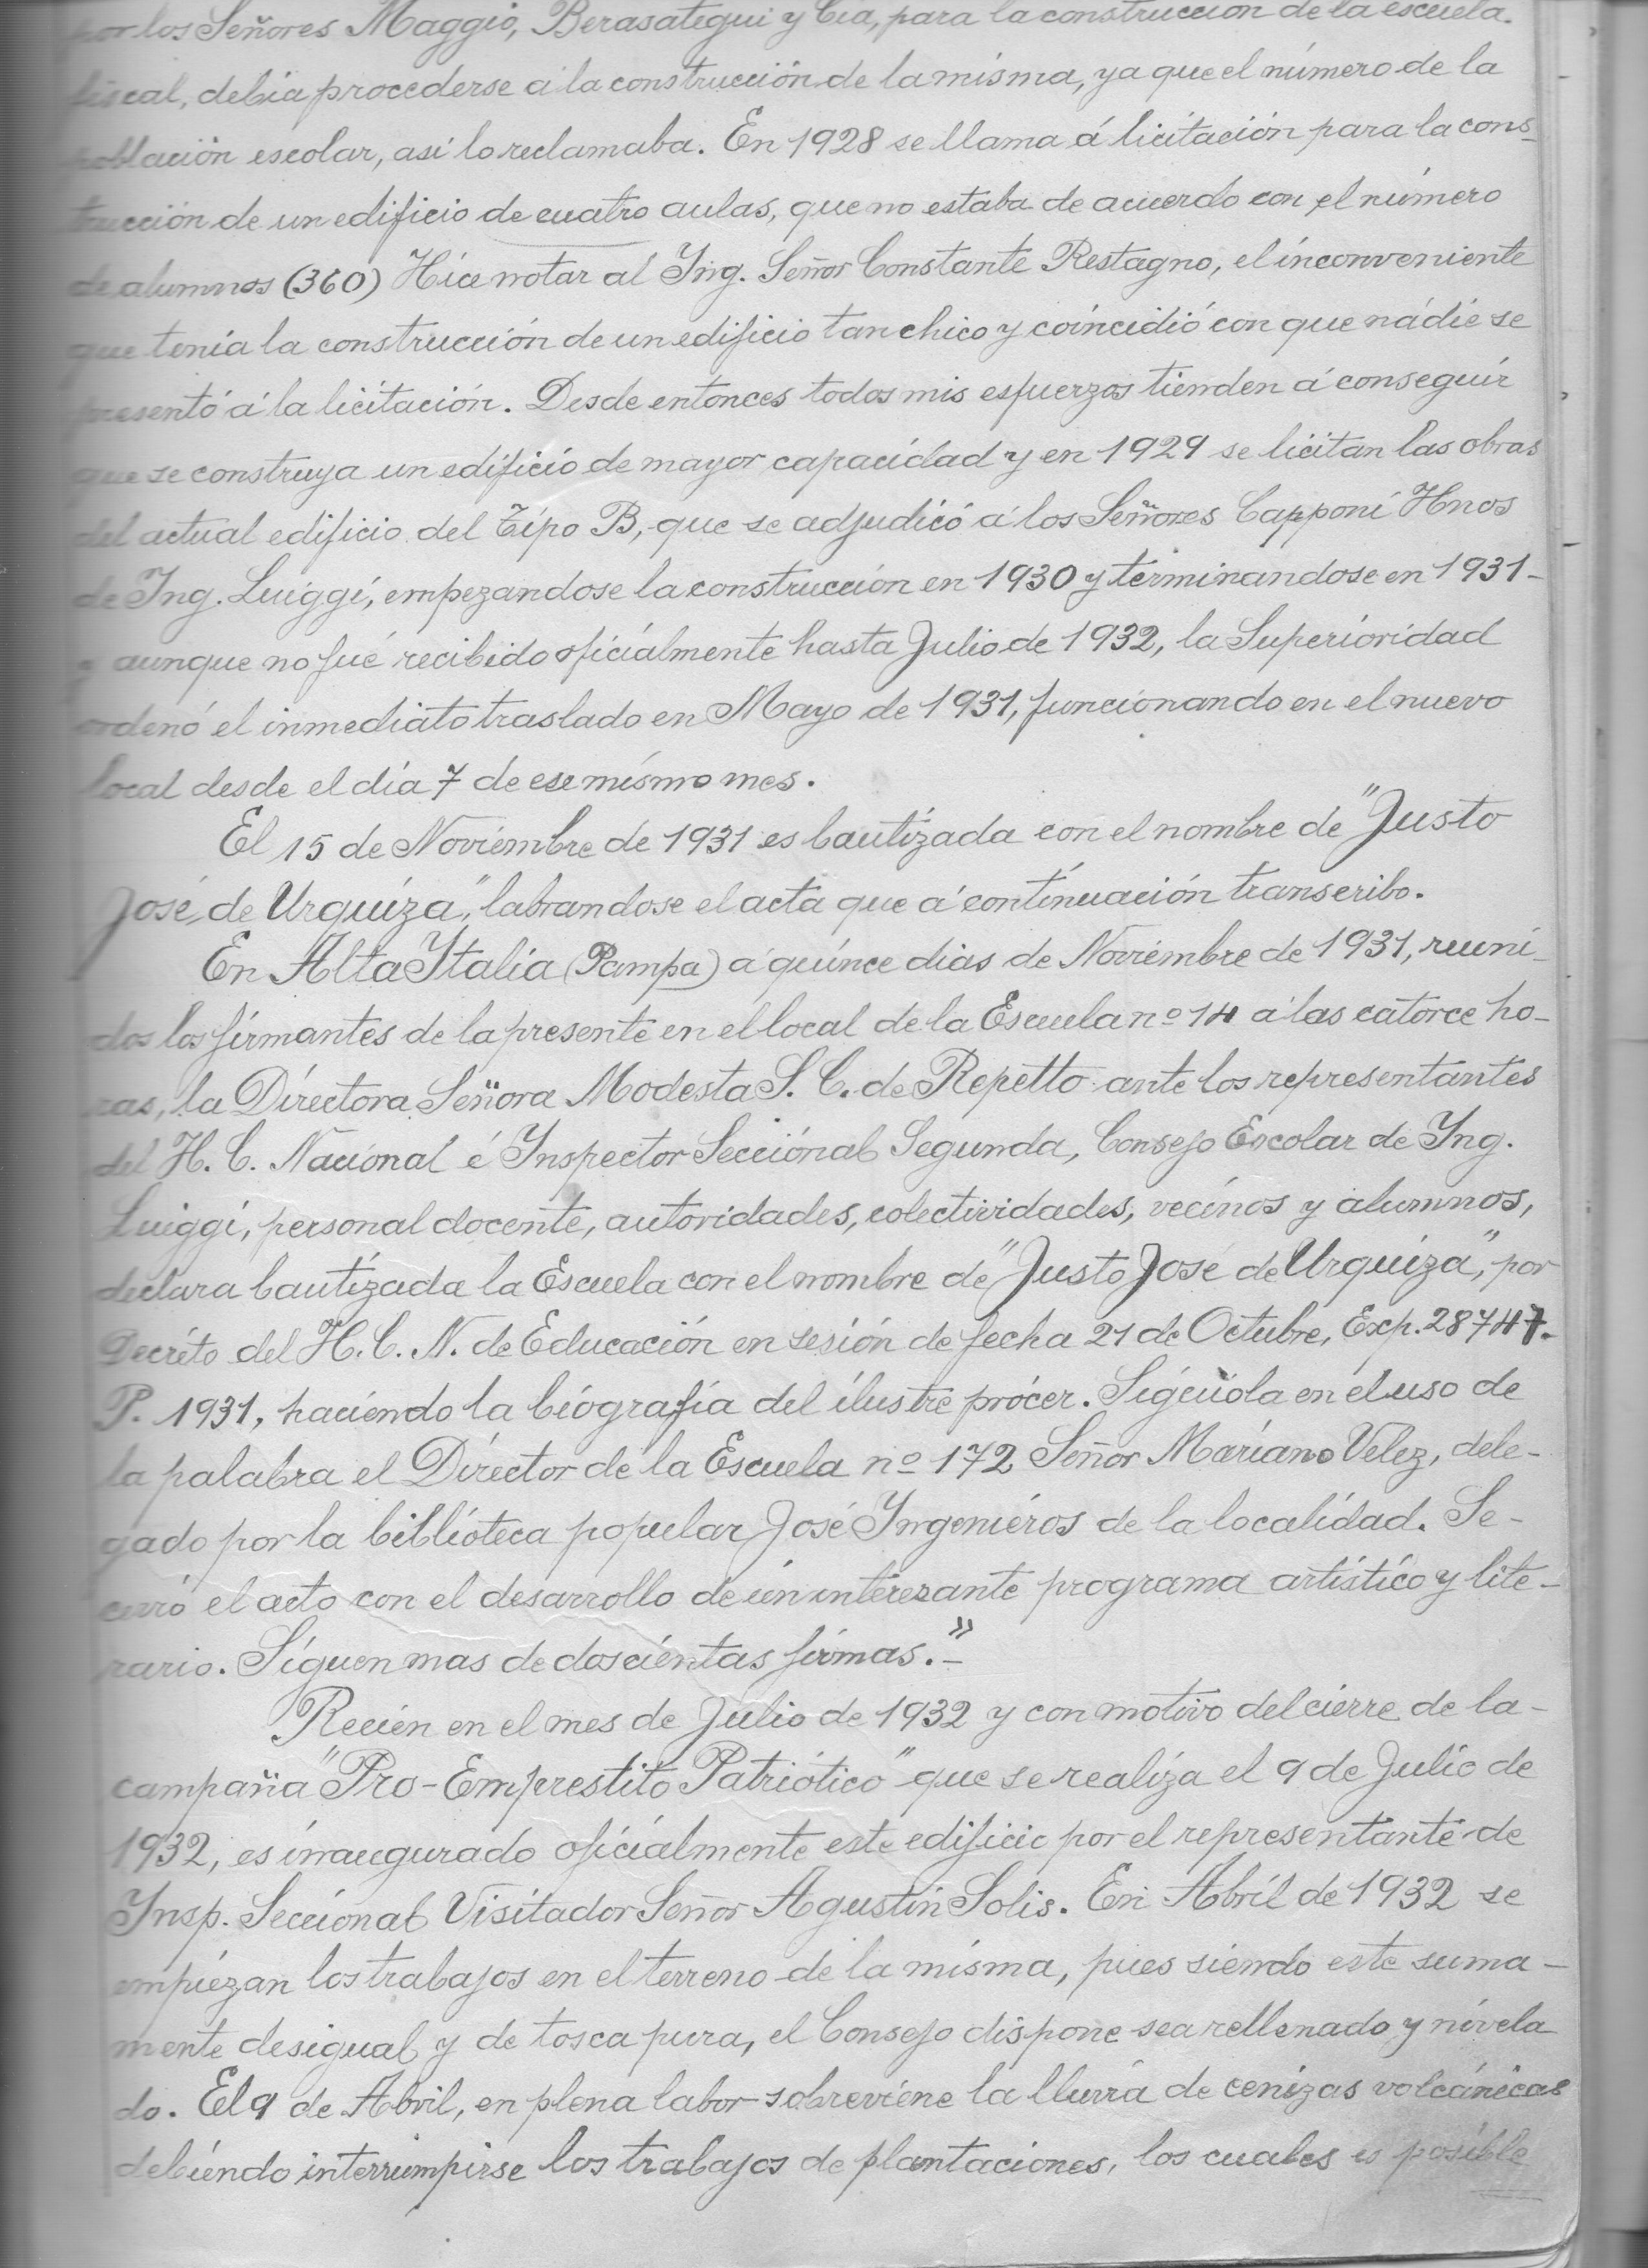 por los Señores Maggio, Berasategui y Cia, para la construccion de la escuela.
fiscal, debía procederse á la construcción de la misma, ya que el número de la
población escolar, asi lo reclamaba. En 1928 se llama á licitación para la cons-
trucción de un edificio de cuatro aulas, que no estaba de acuerdo con el número
de alumnos (360) Hice notar al Yng. Señor Constante Restagno, el inconveniente
que tenía la construcción de un edificio tan chico y coincidió con que nádie se
presentó á la licitación. Desde entonces todos mis esfuerzos tienden á conseguir
que se construya un edificio de mayor capacidad y en 1929 se licitan las obras
del actual edificio del Tipo B, que se adjudicó á los Señores Capponi Hnos
de Yng. Luiggi, empezandose la construcción en 1930 y terminandose en 1931-
y aunque no fué recibido oficialmente hasta Julio de 1932, la Superioridad
ordenó el inmediato traslado en Mayo de 1931, funcionando en el nuevo
local desde el día 7 de ese mismo mes.
El 15 de Noviembre de 1931 es bautizada con el nombre de "Justo
José de Urquiza", labrandose el acta que á continuación transcribo.
En Alta Ytalia (Pampa) á quince dias de Noviembre de 1931, reuni-
dos los firmantes de la presente en el local de la Escuela nº 14 á las catorce ho-
ras, la Directora Señora Modesta S. C. de Repetto ante los representantes
del H. C. Nacional é Ynspector Seccional Segunda, Consejo Escolar de Yng.
Luiggi, personal docente, autoridades, colectividades, vecinos y alumnos,
declara bautizada la Escuela con el nombre de "Justo José de Urquiza", por
Decréto del H. C. N. de Educación en sesión de fecha 21 de Octubre, Exp. 28747.
P. 1931, haciendo la biografía del ilustre prócer. Siguióla en el uso de
la palabra el Director de la Escuela nº 172 Señor Mariano Velez, dele-
gado por la biblioteca popular José Yngenieros de la localidad. Se-
cerró el acto con el desarrollo de un interesante programa artístico y lite-
rario. Siguen mas de doscientas firmas.-"
Recien en el mes de Julio de 1932 y con motivo del cierre de la-
campaña "Pro-Emprestito Patriótico" que se realiza el 9 de Julio de
1932, es inaugurado oficialmente este edificio por el representante de
Ynsp. Seccional Visitador Señor Agustin Solis. En Abril de 1932 se
empiezan los trabajos en el terreno de la misma, pues siendo este suma-
mente desigual y de tosca pura, el Consejo dispone sea rellenado y nivela
do. El 9 de Abril, en plena labor sobreviene la lluvia de cenizas volcánicas
debiendo interrumpirse los trabajos de plantaciones, los cuales es posible